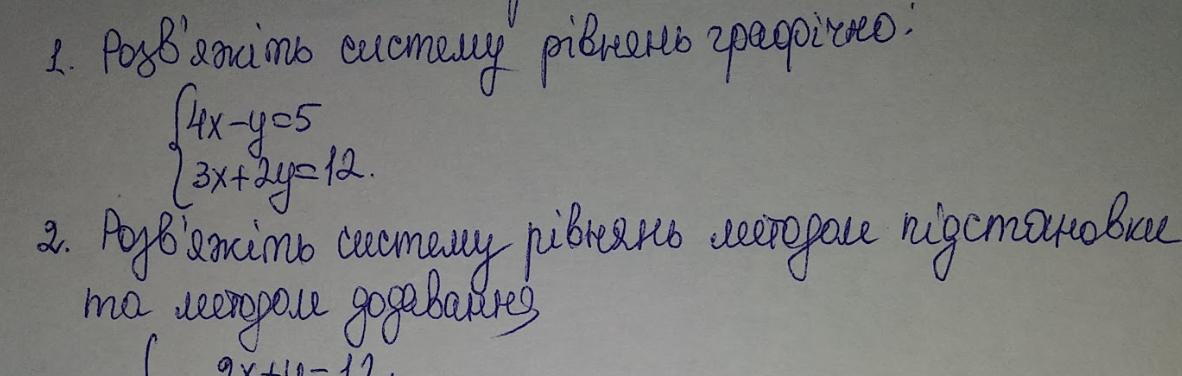 1. Розв'яжіть систему рівнянь графічно:
4x-y=5
3x+2y=12.
2. Розв'яжіть систему рівнянь методом підстановки
та методом додавання